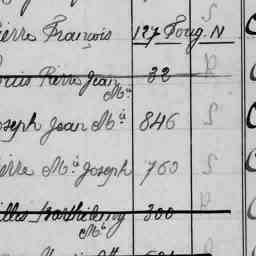 ierre François 127 Foug. N S
Pierre Jean 32 R
Mie
oseph Jean Mie 846 S
ierre Mie Joseph 760 S
illes Barthélemy 300 R
Mie